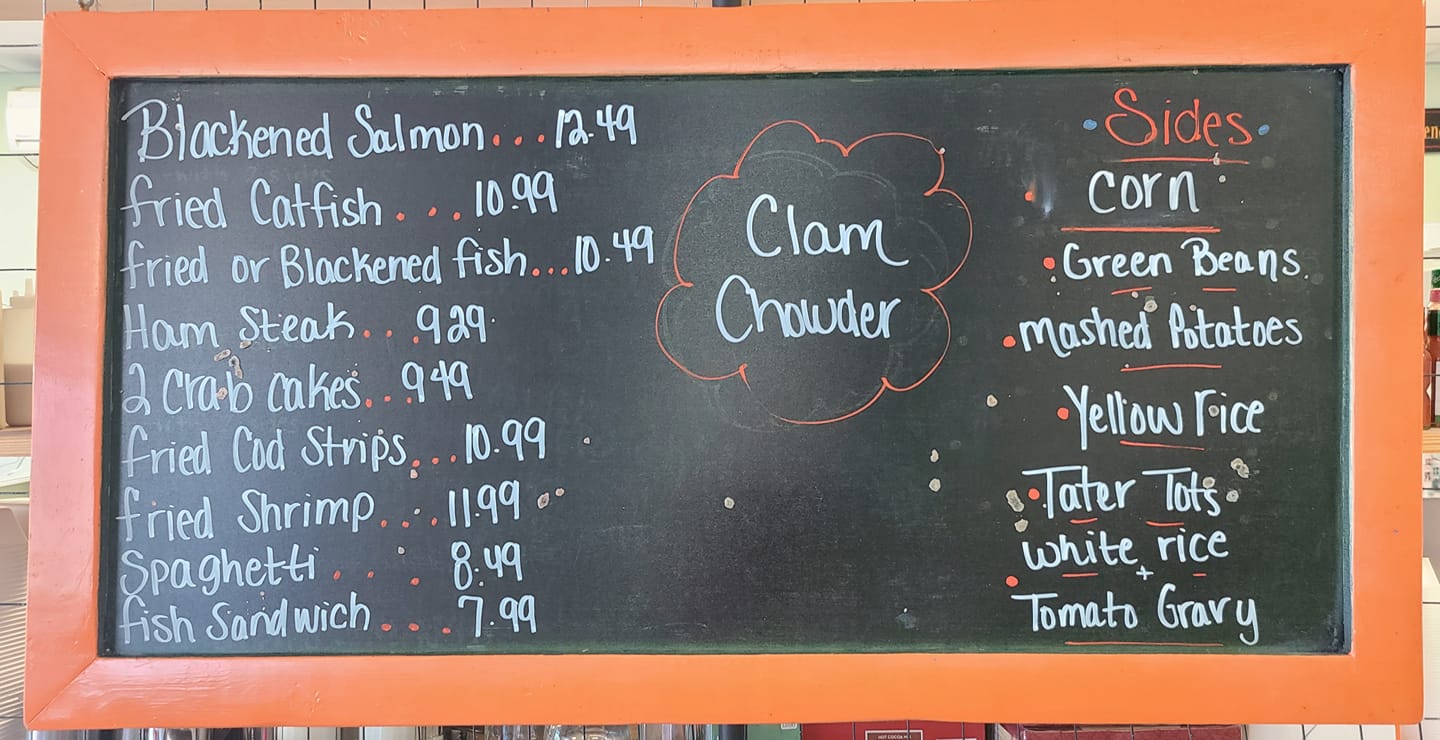 Blackened Salmon...12.49
fried Catfish...10.99
fried or Blackened fish...10.49
Ham Steak...9.29
2 Crab cakes...9.49
fried Cod Strips...10.99
fried Shrimp...11.99
Spaghetti...8.49
fish Sandwich...7.99
Clam
Chowder
Sides
corn
Green Beans
mashed Potatoes
Yellow rice
Tater Tots
white rice
+
Tomato Gravy
HOT COCOA MIX